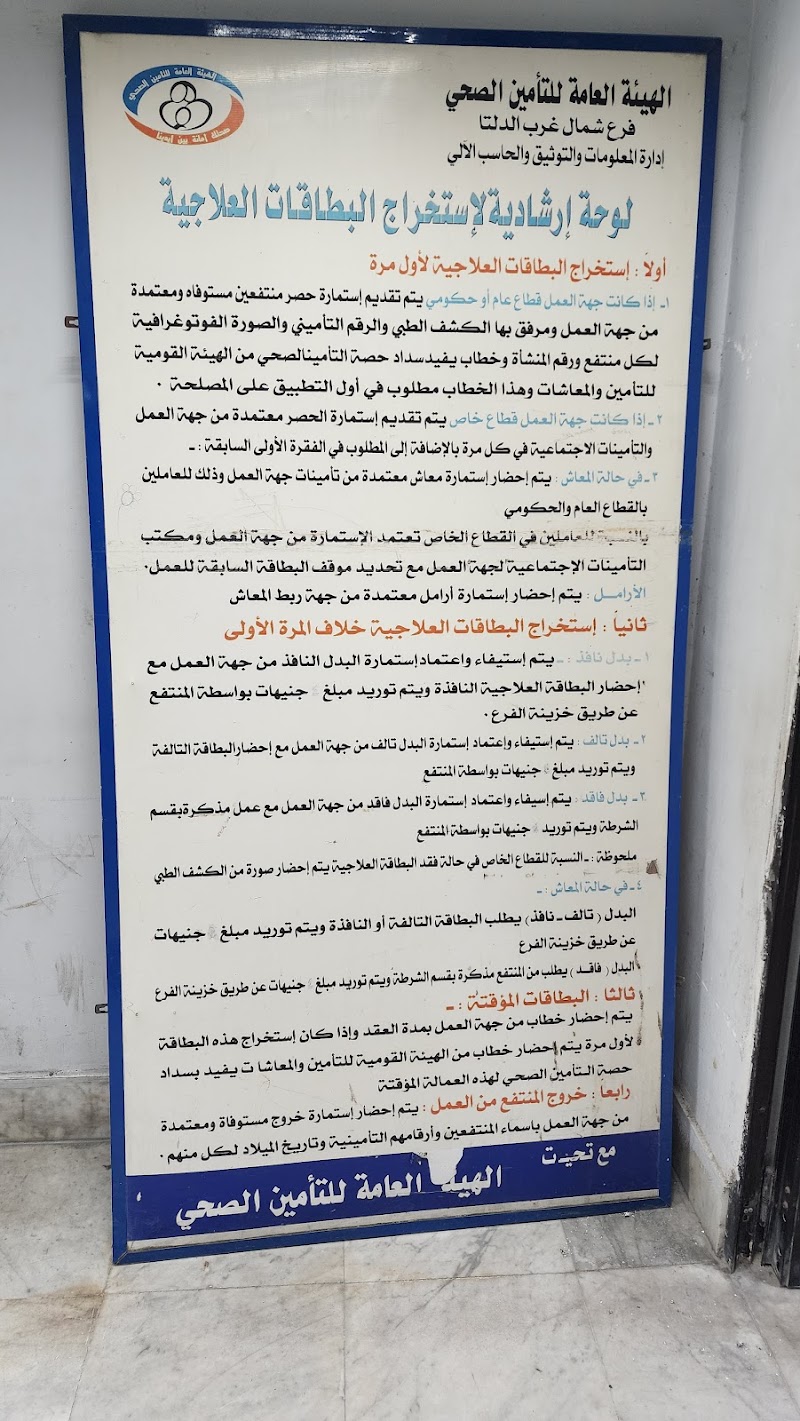 الهيئة العامة للتأمين الصحي
صحتك أمانة بين أيدينا
الهيئة العامة للتأمين الصحي
فرع شمال غرب الدلتا
إدارة المعلومات والتوثيق والحاسب الآلي
لوحة إرشادية لإستخراج البطاقات العلاجية
أولاً : إستخراج البطاقات العلاجية لأول مرة
١- إذا كانت جهة العمل قطاع عام أو حكومي يتم تقديم إستمارة حصر منتفعين مستوفاه ومعتمدة
من جهة العمل ومرفق بها الكشف الطبي والرقم التأميني والصورة الفوتوغرافية
لكل منتفع ورقم المنشأة وخطاب يفيدسداد حصة التأمينالصحي من الهيئة القومية
للتأمين والمعاشات وهذا الخطاب مطلوب في أول التطبيق على المصلحة .
٢- إذا كانت جهة العمل قطاع خاص يتم تقديم إستمارة الحصر معتمدة من جهة العمل
والتأمينات الاجتماعية في كل مرة بالإضافة إلى المطلوب في الفقرة الأولى السابقة :-
٣- في حالة المعاش : يتم إحضار إستمارة معاش معتمدة من تأمينات جهة العمل وذلك للعاملين
بالقطاع العام والحكومي
بالنسبة للعاملين في القطاع الخاص تعتمد الإستمارة من جهة العمل ومكتب
التأمينات الإجتماعية لجهة العمل مع تحديد موقف البطاقة السابقة للعمل.
الأرامـل : يتم إحضار إستمارة أرامل معتمدة من جهة ربط المعاش
ثانياً : إستخراج البطاقات العلاجية خلاف المرة الأولى
١- بدل نافذ :- يتم إستيفاء واعتماد إستمارة البدل النافذ من جهة العمل مع
إحضار البطاقة العلاجية النافذة ويتم توريد مبلغ جنيهات بواسطة المنتفع
عن طريق خزينة الفرع .
٢- بدل تالف : يتم إستيفاء وإعتماد إستمارة البدل تالف من جهة العمل مع إحضارالبطاقة التالفة
ويتم توريد مبلغ جنيهات بواسطة المنتفع
٣- بدل فاقد : يتم إسيفاء واعتماد إستمارة البدل فاقد من جهة العمل مع عمل مذكرة بقسم
الشرطة ويتم توريد جنيهات بواسطة المنتفع
ملحوظة :- النسبة للقطاع الخاص في حالة فقد البطاقة العلاجية يتم إحضار صورة من الكشف الطبي
٤- في حالة المعاش :-
البدل ( تالف - نافذ ) يطلب البطاقة التالفة أو النافذة ويتم توريد مبلغ جنيهات
عن طريق خزينة الفرع
البدل ( فاقـد ) يطلب من المنتفع مذكرة بقسم الشرطة ويتم توريد مبلغ جنيهات عن طريق خزينة الفرع
ثالثا : البطاقات المؤقتة :-
يتم إحضار خطاب من جهة العمل بمدة العقد وإذا كان إستخراج هذه البطاقة
لأول مرة يتم إحضار خطاب من الهيئة القومية للتأمين والمعاشا ت يفيد بسداد
حصة التأمين الصحي لهذه العمالة المؤقتة
رابعاً : خروج المنتفع من العمل : يتم إحضار إستمارة خروج مستوفاة ومعتمدة
من جهة العمل باسماء المنتفعين وأرقامهم التأمينية وتاريخ الميلاد لكل منهم .
مع تحيـت
الهيئـ العامة للتأمين الصحي